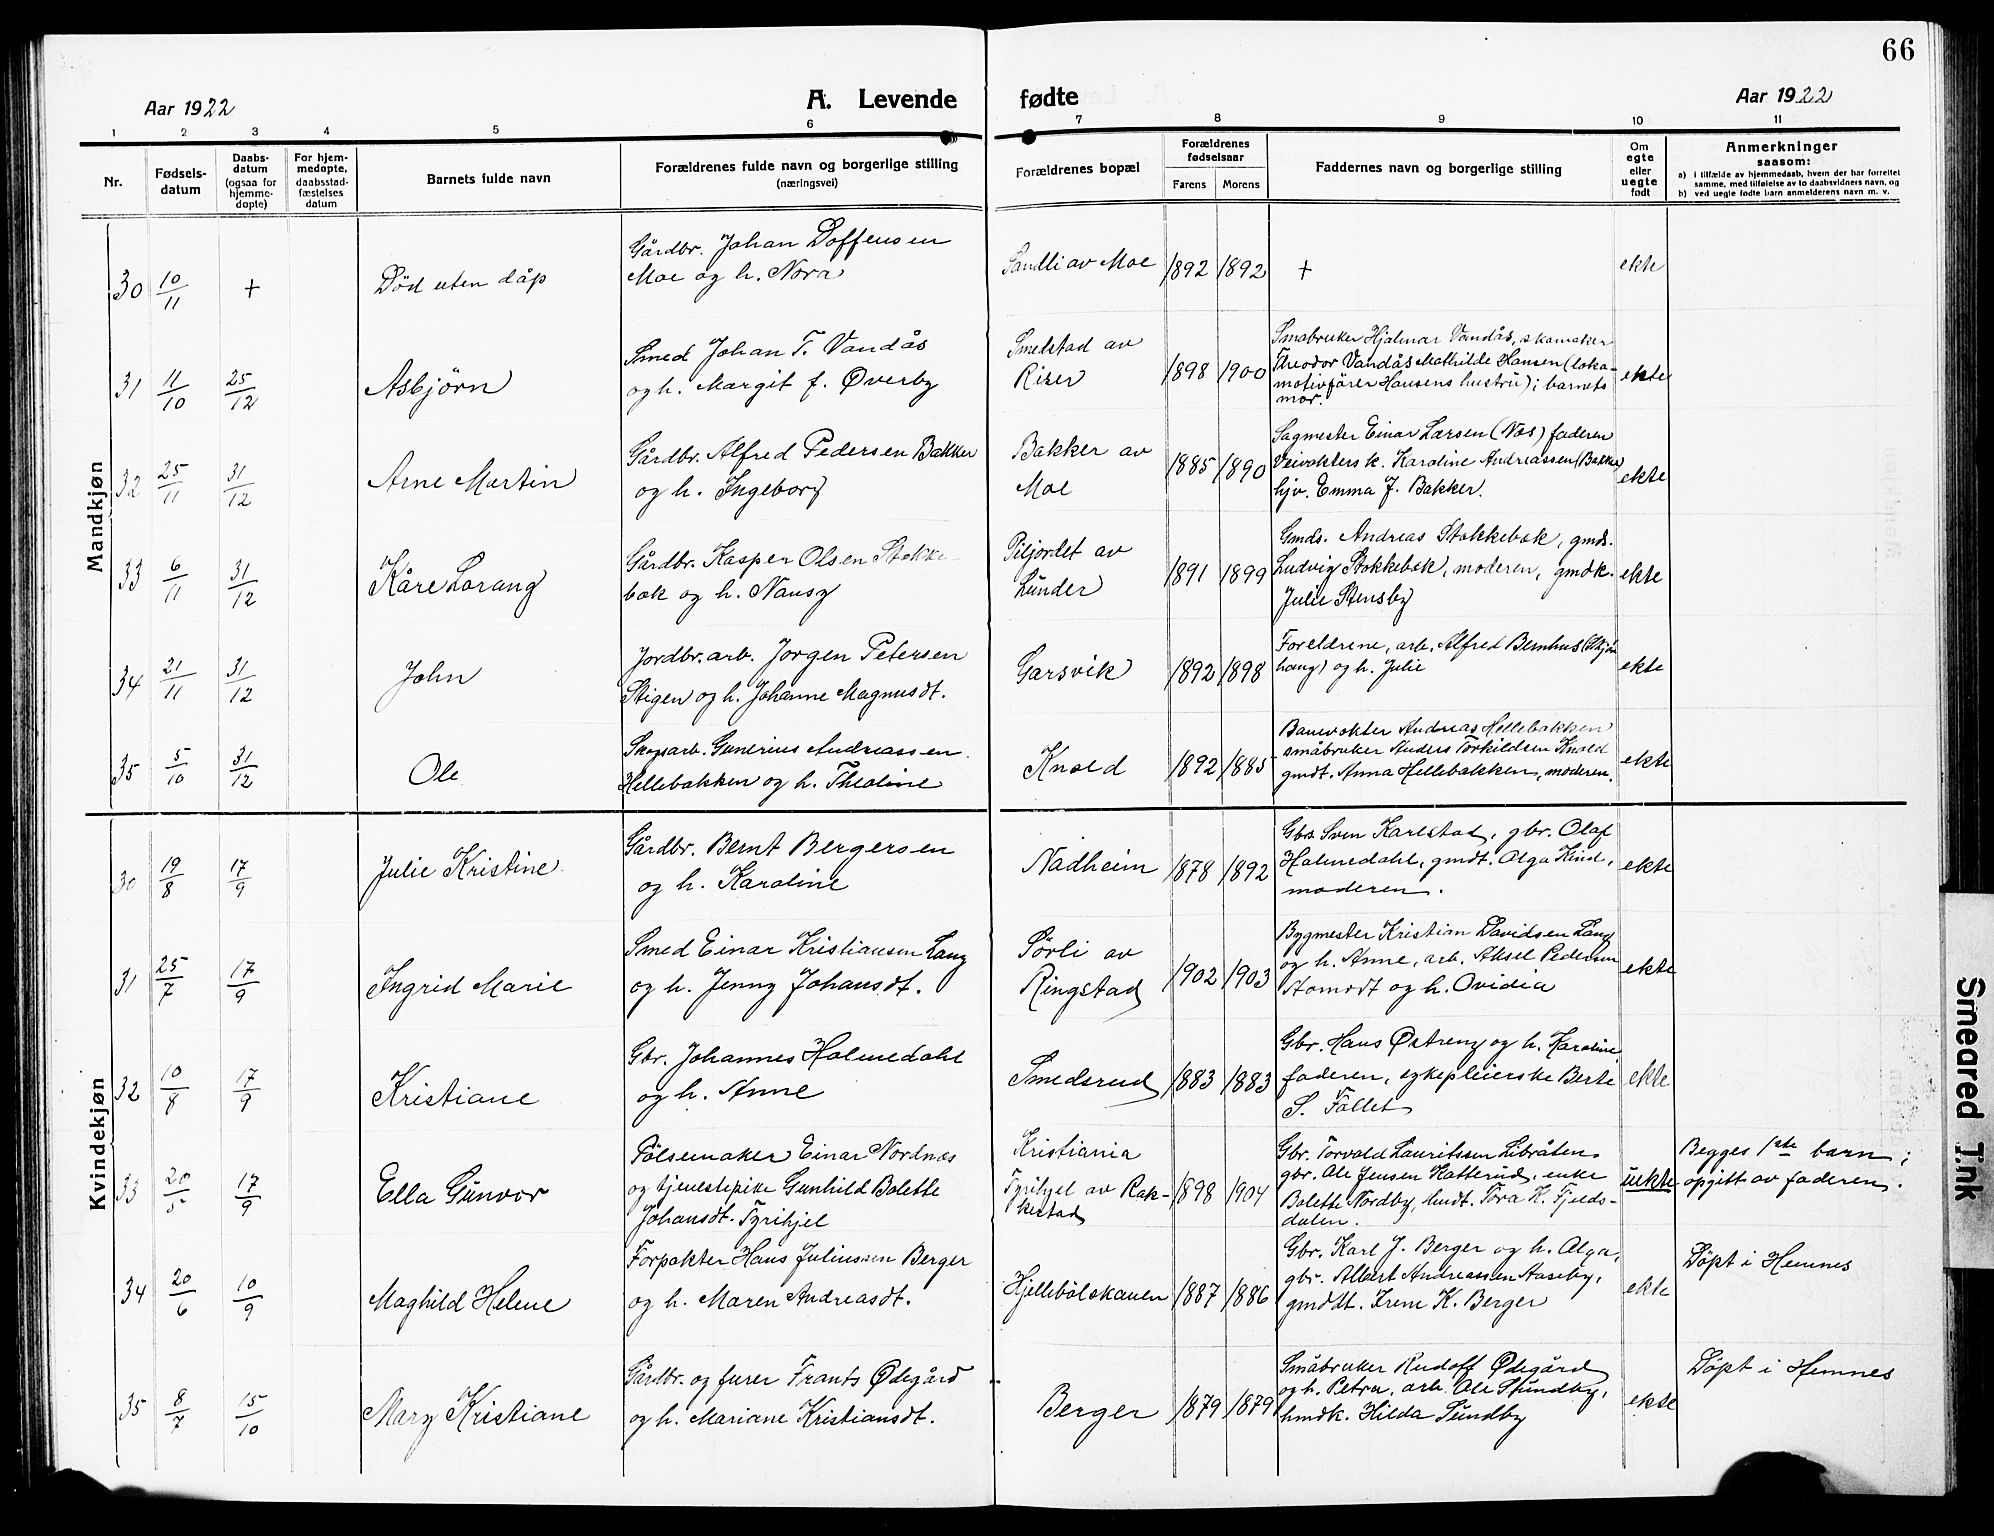 66
Aar 1922
A. Levende fødte
Aar 1922
1 2 3 4 5 6 7 8 9 10 11
Nr.
Fødsels-
datum
Daabs-
datum
(ogsaa for
hjemme-
døpte)
For hjem-
medøpte,
daabsstad-
fæstelses
datum
Barnets fulde navn
Forældrenes fulde navn og borgerlige stilling
(næringsvei)
Forældrenes bopæl
Forældrenes
fødselsaar
Farens Morens
Faddernes navn og borgerlige stilling
Om
egte
eller
uegte
født
Anmerkninger
saasom:
a) i tilfælde av hjemmedaab, hvem der har forrettet
samme, med tilføielse av to daabsvidners navn, og
b) ved uegte fødte barn anmelderens navn m. v.
Mandkjøn
30 10/11 + Død uten dåp
Gårdbr. Johan Doffensen
Moe og h. Nora
Sandli av Moe 1892 1892 + ekte
31 11/10 25/12 Asbjørn
Smed Johan T. Vandås
og h. Margit f. Øverby
Smelstad av
Rizer
1898 1900
Småbruker Hjalmar Vandås, skomaker
Theodor Vandås Mathilde Hansen (loko-
motivfører Hansens hustru); barnets
mor.
ekte
32 25/11 31/12 Arne Martin
Gårdbr. Alfred Pedersen Bakker
og h. Ingeborg
Bakker av
Moe
1885 1890
Sagmester Einar Larsen (Næs) faderen
Veivokters k. Karoline Andreassen (Bakke)
hjv. Emma J. Bakker.
ekte
33 6/11 31/12 Kåre Lorang
Gårdbr. Kasper Olsen Stokke-
bæk og h. Nansy
Piljordet av
Lunder
1891 1899
Gmds. Andreas Stokkebæk, gmds.
Ludvig Stokkebæk, moderen, gmdk.
Julie Stensby
ekte
34 21/11 31/12 John
Jordbr.arb. Jørgen Petersen
Stigen og h. Johanne Magnusdt.
Garsvik 1892 1898
Foreldrene, arb. Alfred Bernhus
haug) og h. Julie
ekte
35 5/10 31/12 Ole
Skogsarb. Gunerius Andreassen
Hellebakken og h. Theoline
Knold 1892 1885
Banevokter Andreas Hellebakken
småbruker Anders Torkildsen Knold
gmdt. Anna Hellebakken, moderen.
ekte
Kvindekjøn
30 19/8 17/9 Julie Kristine
Gårdbr. Bernt Bergersen
og h. Karoline
Nadheim 1878 1892
Gbr. Sven Karlstad, gbr. Olaf
Holmedahl, gmdt. Olga Kind,
moderen.
ekte
31 25/7 17/9 Ingrid Marie
Smed Einar Kristiansen Lang
og h. Jenny Johansdt.
Sørli av
Ringstad
1902 1903
Bygmester Kristian Davidsen Lang
og h. Anne, arb. Aksel Pedersen
og h. Ovidia
ekte
32 10/8 17/9 Kristiane
Gbr. Johannes Holmedahl
og h. Anne
Smedsrud 1883 1883
Gbr. Hans Østreng og h. Karoline
faderen, sykepleierske Berte
S. Fallet
ekte
33 20/5 17/9 Ella Gunvor
Pølsemaker Einar Nordnæs
og tjenestepike Gunhild Bolette
Johansdt. Tyrihjel
Kristiania
Tyrihjel av Rak-
kestad
1898 1904
Gbr. Torvald Lauritssen Libråten
gbr. Ole Jensen Katterud, enke
Bolette Nordby, hmdt. Tora K. Fjelds-
dalen.
uekte
Begges 1ste barn;
opgitt av faderen.
34 20/6 10/9 Maghild Helene
Forpakter Hans Juliussen Berger
og h. Maren Andreasdt.
Hjellebølskauen 1887 1886
Gbr. Karl J. Berger og h. Olga,
gbr. Albert Andreassen Aaseby,
gmddt. Irene K. Berger
ekte
Døpt i Hemnes
35 8/7 15/10 Mary Kristiane
Gårdbr. og furer Frants Ødegård
og h. Mariane Kristiansdt.
Berger 1879 1879
Småbruker Rudolf Ødegård
og h. Petra, arb. Ole Sundby,
hmdk. Hilda Sundby
ekte
Døpt i Hemnes
Smeared Ink